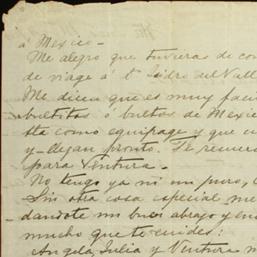 á Mexico.-
Me alegro que tuvieras de com
de viage á Sn Isidro del Vall
Me dicen que es muy faci
bultitos ó bultos de Mexic
tte como equipage y que
y llegan pronto. Te
para Ventura.-
No tengo ya ni un puro,
Sin otra cosa especial me
dandote un buen abrazo y en
mucho que te cuides:
Angela, Julia y Ventura m